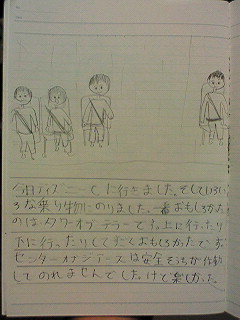 今日ディズニーしーに行きました。そしていろい
ろな乗り物にのりました。一番おもしろかった
のはタワーオブテラーです。上に行ったり
下に行ったりしてすごくおもしろかったです
センターオブジアースは安全そうちが作動
してのれませんでしたけど楽しかった。